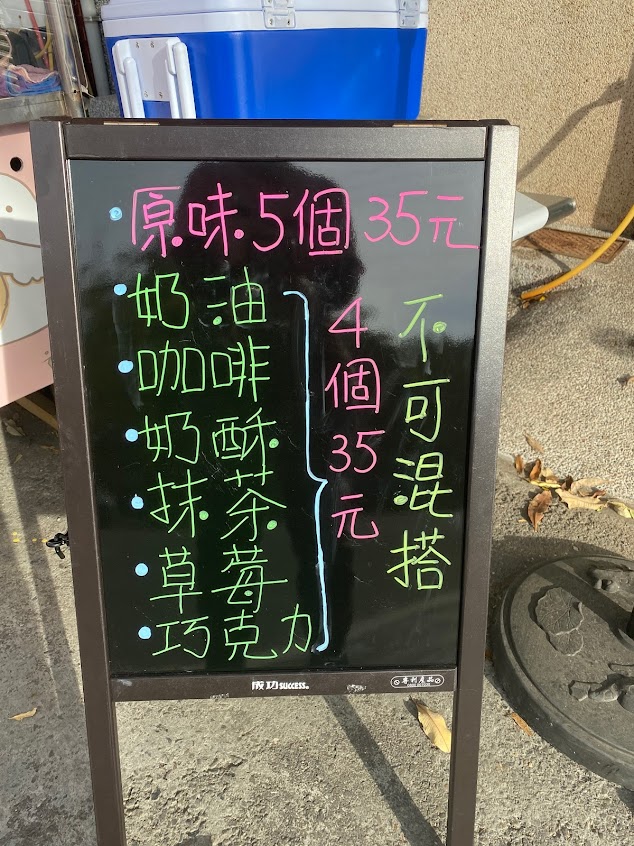 原味5個35元
奶油
咖啡
奶酥
抹茶
草莓
巧克力
4個35元
不可混搭
成功SUCCESS®
專利產品